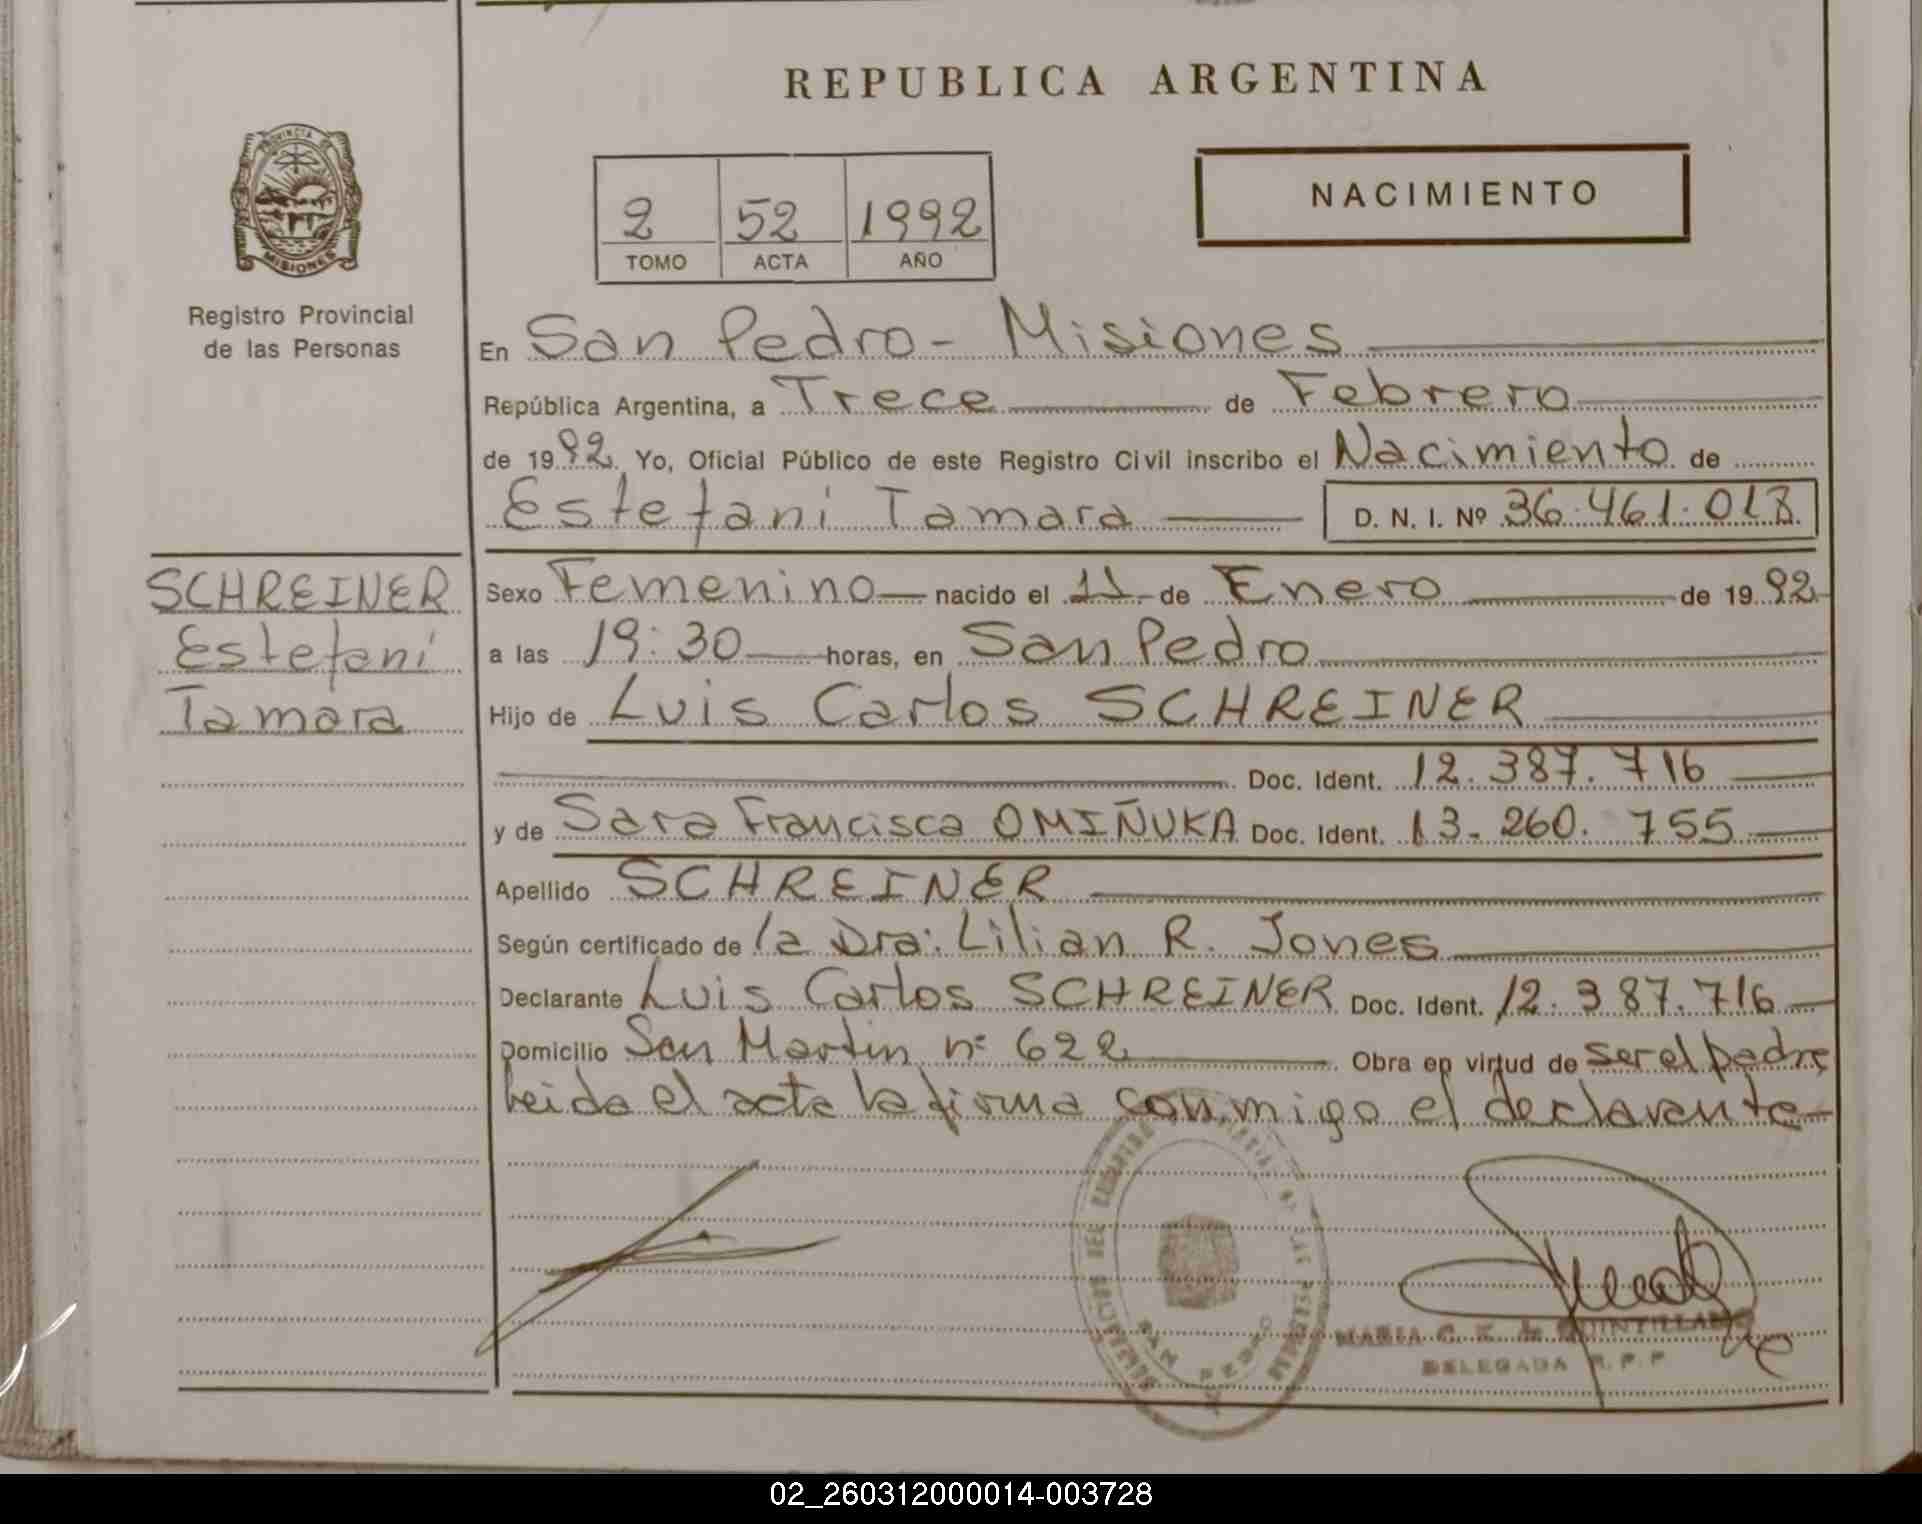 REPUBLICA ARGENTINA
PROVINCIA DE
MISIONES
Registro Provincial
de las Personas
NACIMIENTO
2 52 1992
TOMO ACTA AÑO
En San Pedro - Misiones
República Argentina, a Trece de Febrero
de 1992 Yo, Oficial Público de este Registro Civil inscribo el Nacimiento de
Estefani Tamara D. N. I. Nº 36.461.018
SCHREINER
Estefani
Tamara
Sexo Femenino nacido el 11 de Enero de 1992
a las 19:30 horas, en San Pedro
Hijo de Luis Carlos SCHREINER
Doc. Ident. 12.387.716
y de Sara Francisca OMIÑUKA Doc. Ident. 13.260.755
Apellido SCHREINER
Según certificado de la Dra: Lilian R. Jones
Declarante Luis Carlos SCHREINER Doc. Ident. 12.387.716
Domicilio San Martin nº 622 Obra en virtud de ser el padre
leida el acta la firma conmigo el declarante
SAN PEDRO
MARIA C. K. de QUINTILLAN
DELEGADA R.P.P
02_260312000014-003728